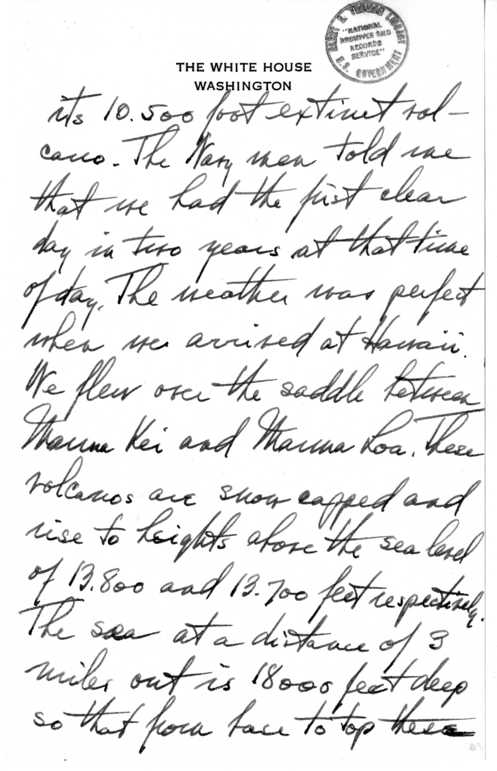 HARRY S. TRUMAN LIBRARY
"NATIONAL
ARCHIVES AND
RECORDS
SERVICE"
U.S. GOVERNMENT
THE WHITE HOUSE
WASHINGTON
its 10.500 foot extinct vol-
cano. The Navy men told me
that we had the first clear
day in two years at that time
of day. The weather was perfect
when we arrived at Hawaii.
We flew over the saddle between
Mauna Kei and Mauna Loa. These
volcanos are snow capped and
rise to heights above the sea level
of 13.800 and 13.700 feet respectively.
The sea at a distance of 3
miles out is 18000 feet deep
so that from base to top these